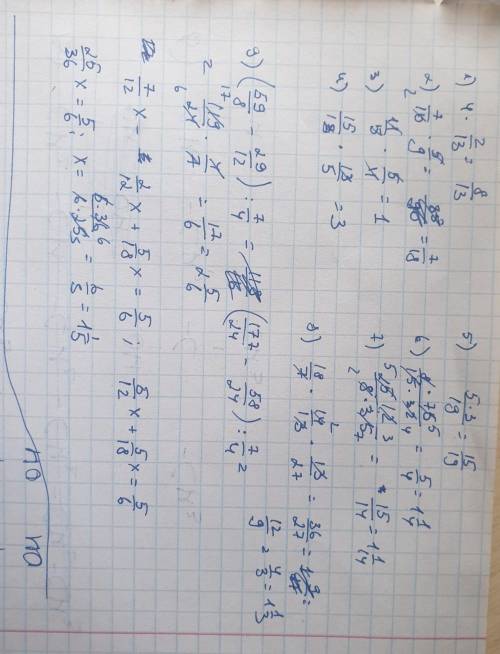 1) 4 · 2/13 = 8/13
2) 7/10 · 5/9 = 7/18
3) 11/5 · 5/11 = 1
4) 15/13 · 13/5 = 3
5) 5·3/19 = 15/19
6) = 5/4 = 1 1/4
7) = 15/14 = 1 1/14
8) 18/7 · 14/13 · 13/27 = 36/27 =
12/9 = 4/3 = 1 1/3
9) (59/8 - 29/12) : 7/4 = (177/24 - 58/24) : 7/4 =
119/24 · 4/7 = 17/6 = 2 5/6
7/12 x - 2/12 x + 5/18 x = 5/6 ; 5/12 x + 5/18 x = 5/6
25/36 x = 5/6 ; x = 5·36/6·25 = 6/5 = 1 1/5